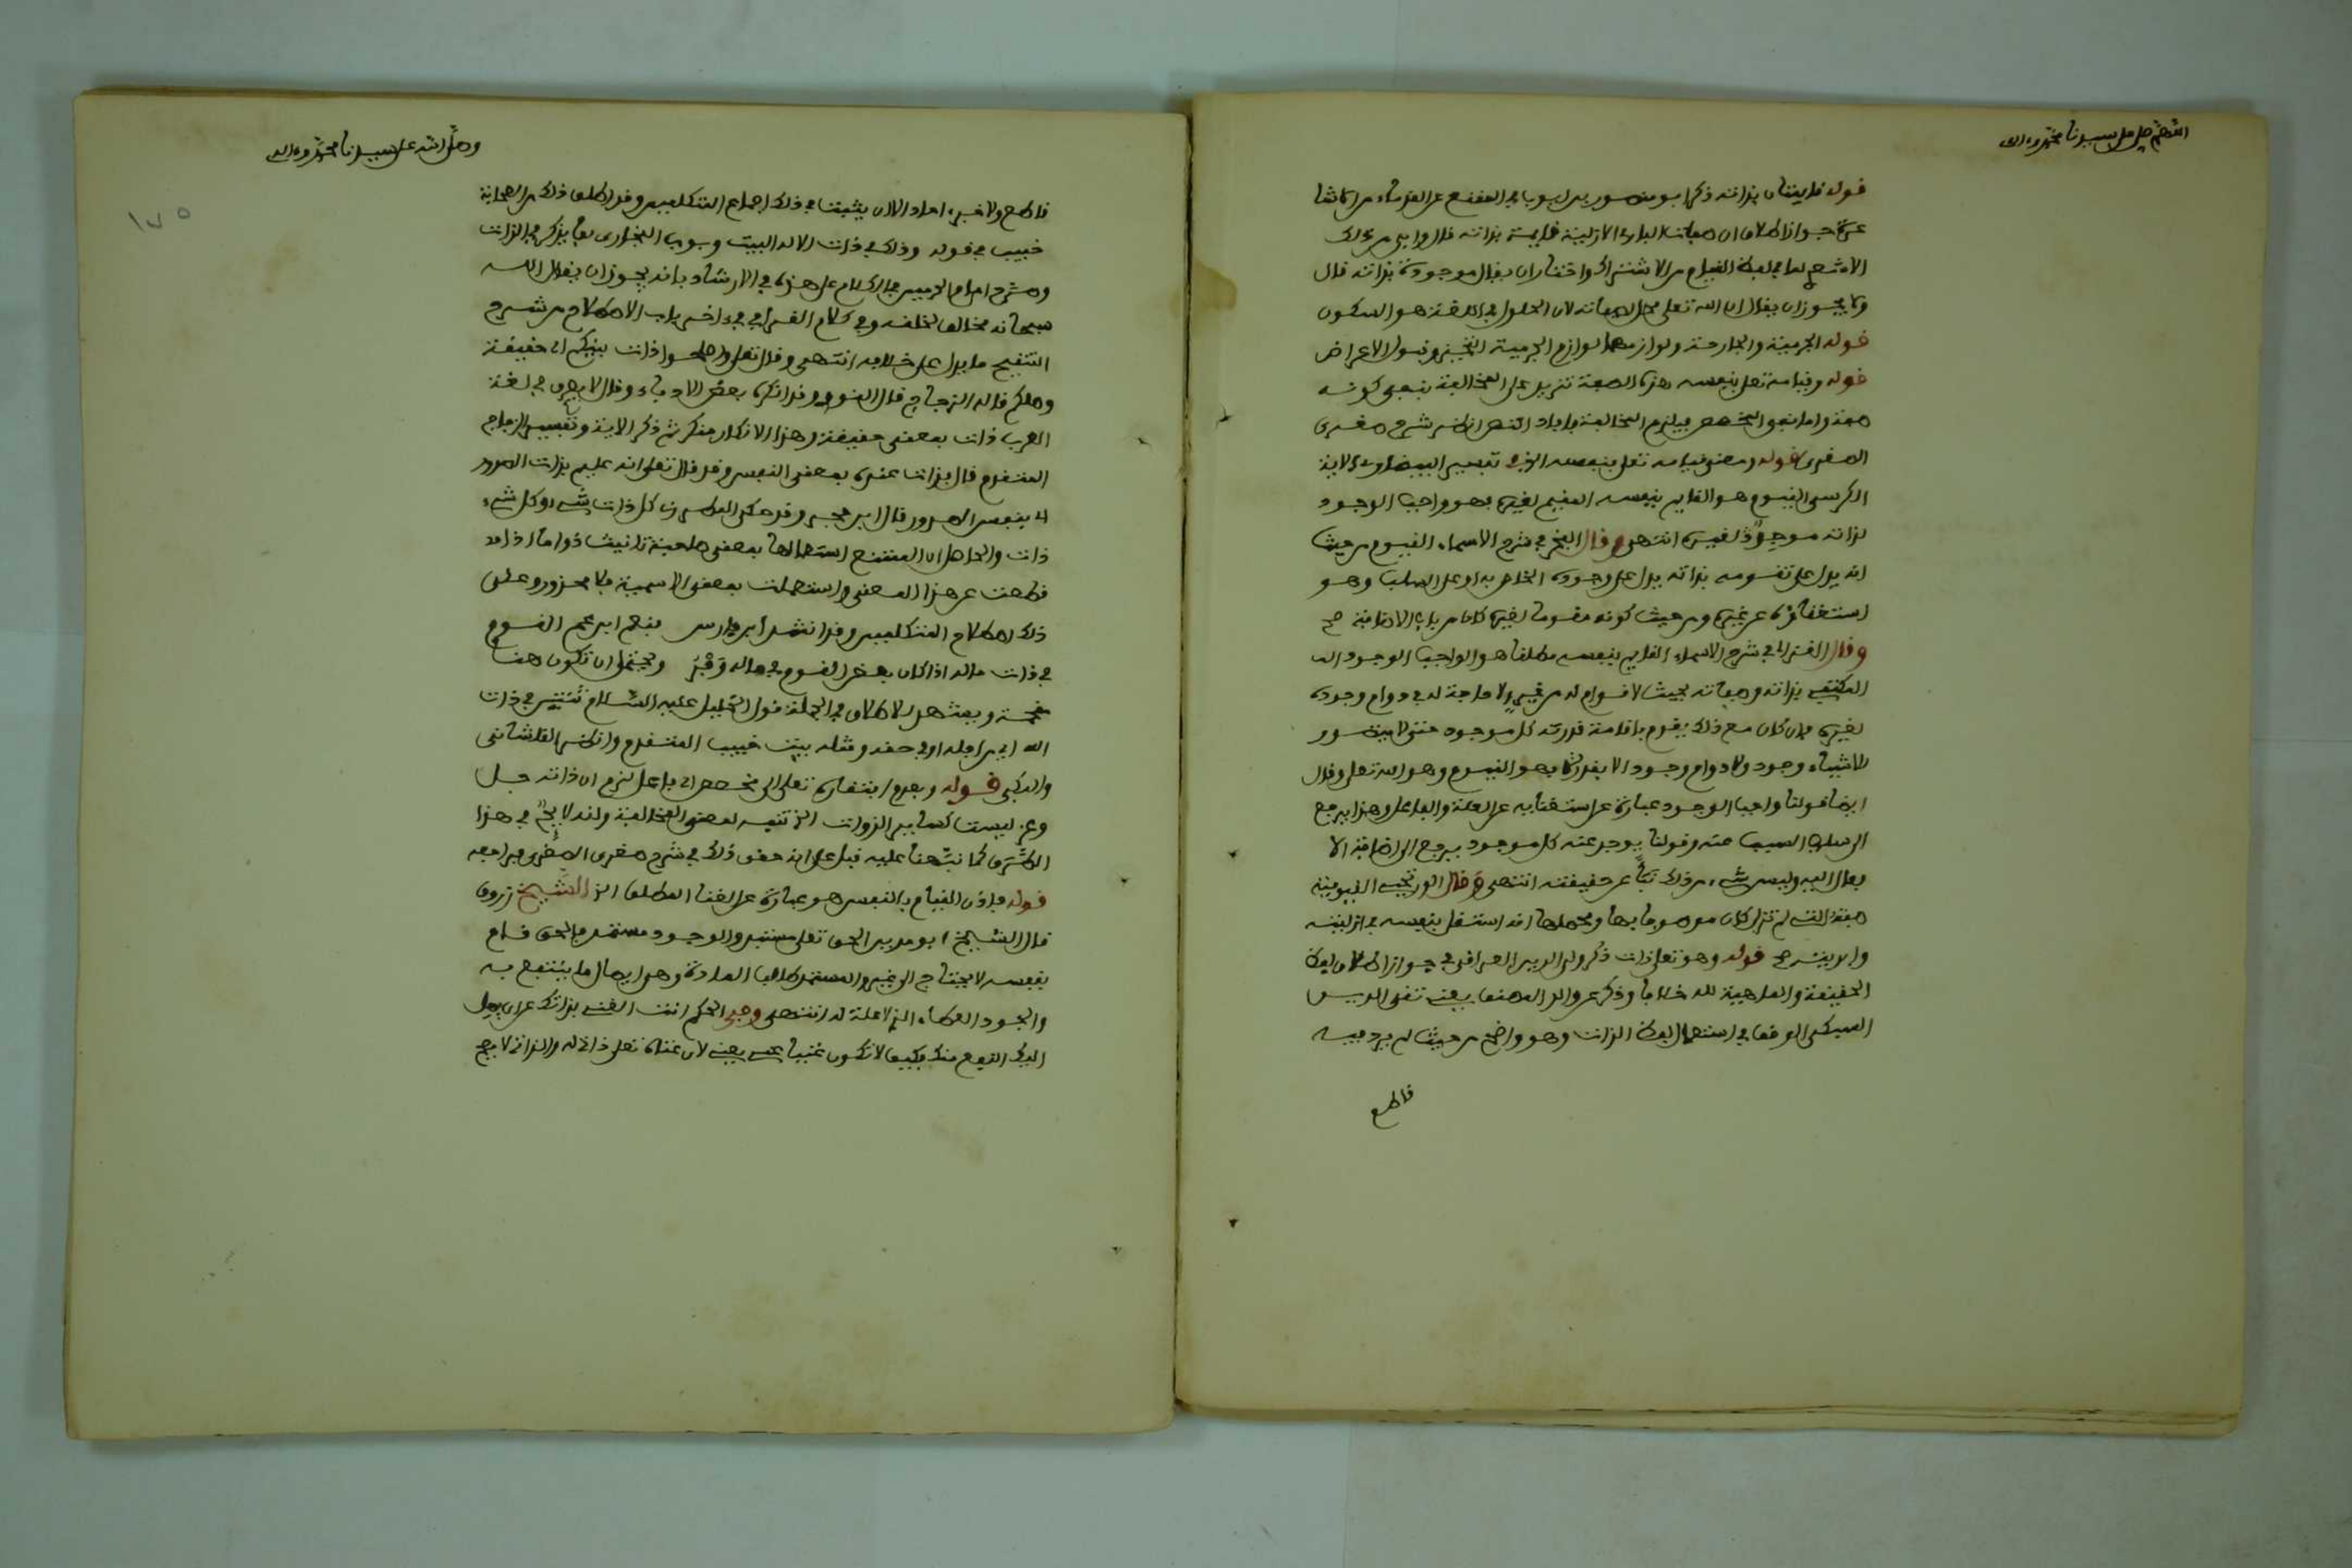 اللهم صل على سيدنا محمد وءاله
قوله قايمتان بذاته ذكر ابو منصور بن ايوب في المقنع عن القدماء من
جواز اطلاق ان صفات البارئ الازلية قايمة بذاته قال وابى من ذلك
الاشعري لما في لفظ القيام من الاشتراك واختار ان يقال موجودة بذاته قال
ولا يجوز ان يقال ان الله تعلى محل لصفاته لان الحلول في اللغة هو السكون
قوله الجرمية والجارحة ولوازمهما لوازم الجرمية التحيز وقبول الاعراض
قوله وقيامه تعلى بنفسه هذه الصفة تزيد على المخالفة بنفي كونه
صفة واما نفي المخصص فيلزم المخالفة انظر شرح صغرى
الصغرى قوله ومعنى قيامه تعلى بنفسه الخ في تفسير البيضاوي لاية
الكرسي القيوم هو القايم بنفسه المقيم لغيره فهو واجب الوجود
لذاته موجود لغيره انتهى وقال الفخر في شرح الاسماء القيوم من حيث
انه يدل على تقومه بذاته يدل على وجوده الخاص به او على السلب وهو
استغناؤه عن غيره ومن حيث كونه مقوما لغيره كان من باب الاضافة صح
وقال الغزالي في شرح الاسماء القايم بنفسه مطلقا هو الواجب الوجود
المكتفي بذاته وصفاته بحيث لا قوام له من غيره ولا حاجة له في دوام وجوده
لغيره فان كان مع ذلك يقوم باقامة قدرته كل موجود حتى لا يتصور
للاشياء وجود ولا دوام وجود الا بقدرته فهو القيوم وهو الله تعلى وقال
ايضا قولنا واجب الوجود عبارة عن استغنايه عن العلة والفاعل وهذا يرجع
الى سلب السبب عنه وقولنا يوجد عنه كل موجود يرجع الى اضافة الا
فعال اليه وليس شيء من ذلك نبأ عن حقيقته انتهى وقال الورتجبي القيومية
صفته التي لم تزل كان موصوفا بها ومحصلها انه استقل بنفسه في ازليته
وابديته صح قوله وهو تعلى ذات ذكر ولي الدين العراقي في جواز اطلاق لفظ
الحقيقة والماهية لله خلافا وذكر عن والد المصنف يعني تقي الدين
السبكي الوقف في استعمال لفظ الذات وهو واضح من حيث لم يرد فيه
قاطع
وصلى الله على سيدنا محمد وءاله
١٧٥
قاطع ولا خبر احاد الا ان يثبت في ذلك اجماع المتكلمين وقد اطلق ذلك من الصحابة
خبيب في قوله وذلك في ذات الاله البيت وبوب البخاري لما يذكر في الذات
وصرح امام الحرمين في الكلام على هذه في الارشاد بانه يجوز ان يقال الله
سبحانه مخالف لخلقه وفي كلام القرافي في ءاخر باب الاصطلاح من شرح
التنقيح ما يدل على خلافه انتهى وقال تعلى واصلحوا ذات بينكم اي حقيقة
وصلكم قاله الزجاج قال النووي وقد انكره بعض الادباء وقال لا يعرف في لغة
العرب ذات بمعنى حقيقة وهذا الانكار منكر ثم ذكر الاية وتفسير الزجاج
المتقدم قال بذات عنده بمعنى النفس وقد قال تعلى انه عليم بذات الصدور
اي بنفس الصدور قال ابن حجر وقد حكى المطرزي كل ذات شيء وكل شيء
ذات والحاصل ان الممتنع استعمالها بمعنى صاحبة تانيث ذو اما اذا
قطعت عن هذا المعنى واستعملت بمعنى الاسمية فلا محذور وعلى
ذلك اصطلاح المتكلمين وقد انشد ابن فارس فنعم ابن عم القوم
في ذات ماله اذا كان بعض القوم في ماله وفر ويحتمل ان تكون هنا
مقحمة ويشهد للاطلاق في الجملة قول الخليل عليه السلام ثنتين في ذات
الله اي من اجله او في حقه ومثله بيت خبيب المتقدم وانظر القلشاني
والدكي قوله وبعدم افتقاره تعلى الى مخصص اي فاعل لزم ان ذاته جل
وعز ليست كساير الذوات الخ تنبيه لمعنى المخالفة وانه لا في هذا
الطرف كما نبهنا عليه قبل على انه حقق ذلك في شرح صغرى الصغرى فراجعه
قوله فاذن القيام بالنفس هو عبارة عن الغنا المطلق الخ الشيخ زروق
قال الشيخ ابو مدين الحق تعلى مستبد والوجود مستمد فالحق قام
بنفسه لا يحتاج الى غيره والمستمد طالب المادة وهو ايصال ما ينتفع به
والجود العطاء الذي لا علة له انتهى وفي الحكم انت الغني بذاتك عن ان يصل
اليك النفع منك فكيف لا تكون غنيا عني يعني لان غناه تعلى ذاتي له والذاتي لا يصح